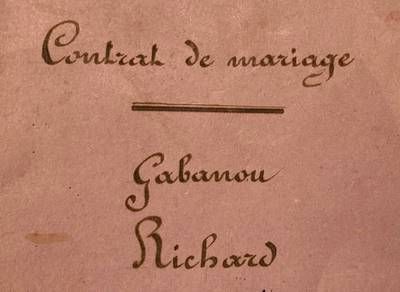 Contrat de mariage
Gabanou
Richard